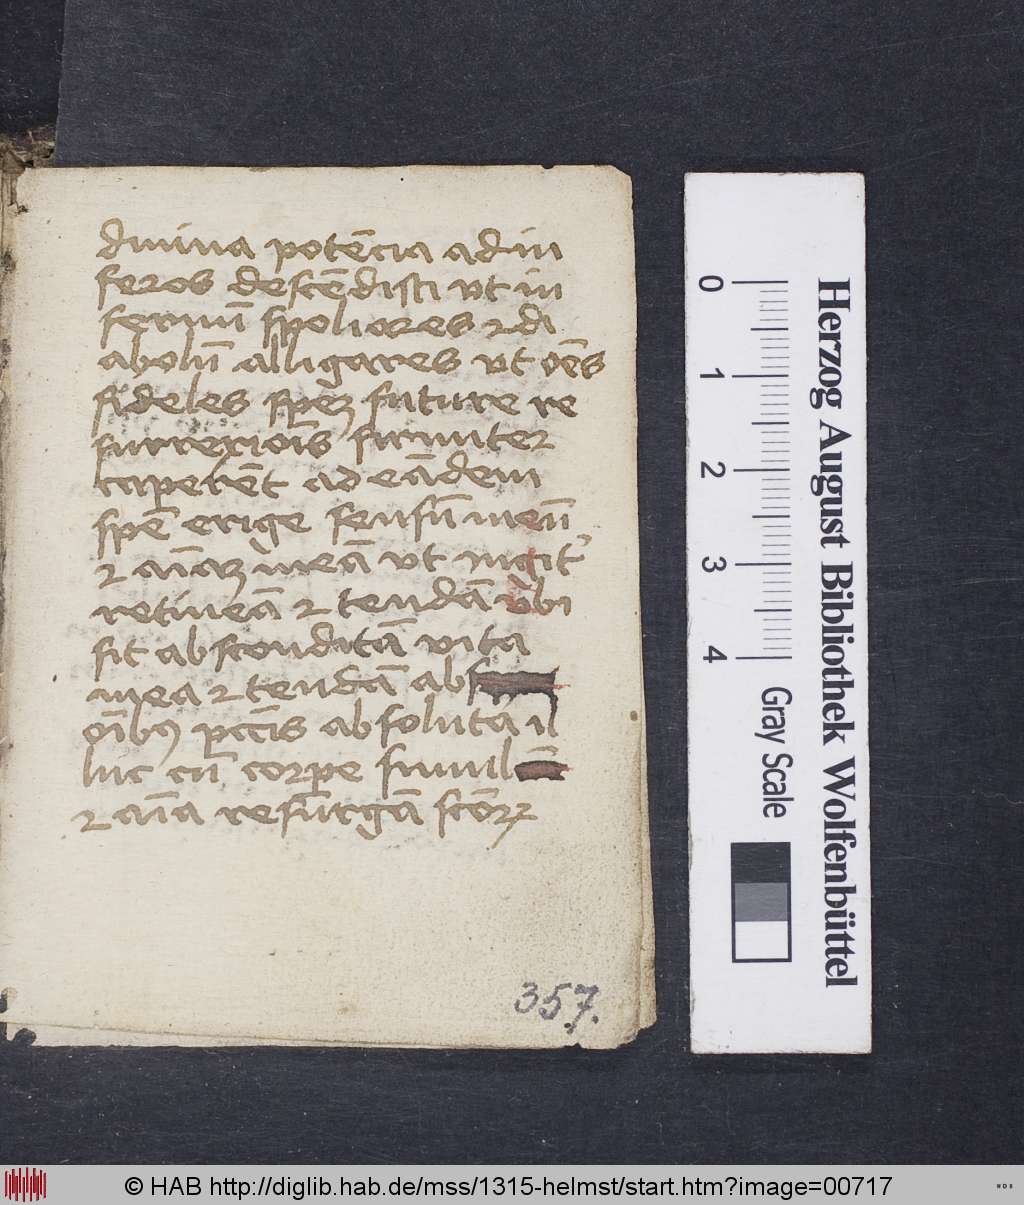 diuina potēcia ad in
feros descēdisti vt in
fernū spoliares ⁊ di
abolū alligares vt oēs
fideles speꝫ future re
surrexiōis firmiter
caperēt ad eādem
spē erige sensū meū
⁊ aīaꝫ meā vt
retineā ⁊ tendā vbi
sit abscondita vita
mea ⁊ tendā ab
oībꝰ pctīs absoluta il
luc cū corpe simul
⁊ aīa resurgā scōꝝ
357.
Herzog August Bibliothek Wolfenbüttel
0 1 2 3 4
Gray Scale
© HAB http://diglib.hab.de/mss/1315-helmst/start.htm?image=00717